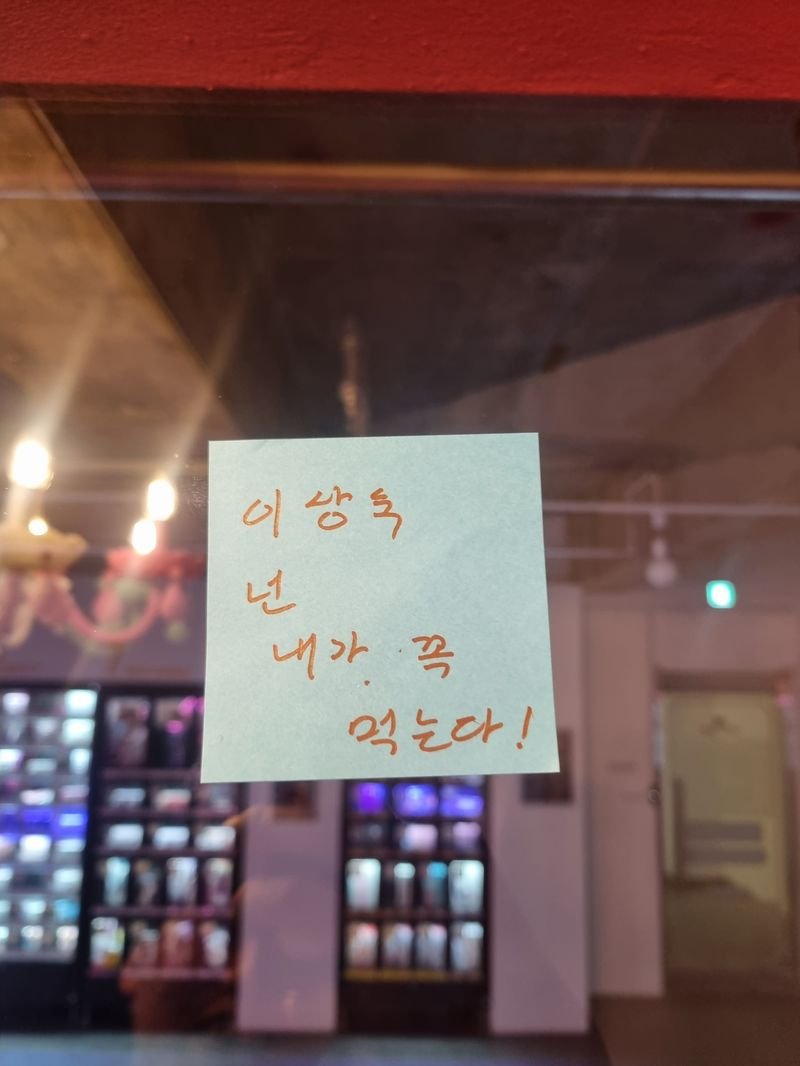 이상욱
넌
내가 꼭
먹는다!